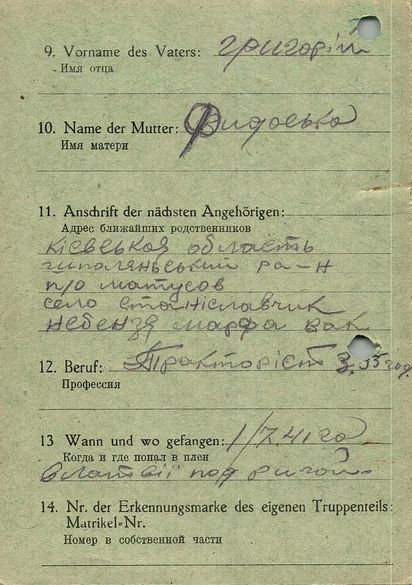 9. Vorname des Vaters: григорій
Имя отца
10. Name der Mutter: Фидоська
Имя матери
11. Anschrift der nächsten Angehörigen:
Адрес ближайших родственников
кієвськая область
ра-н
п/о матусов
село станіславчик
небензя марфа
12. Beruf: Тракторіст З
Профессия
13 Wann und wo gefangen: 1/7.41 го
Когда и где попал в плен
в латвії под ригой
14. Nr. der Erkennungsmarke des eigenen Truppenteils:
Matrikel-Nr.
Номер в собственной части